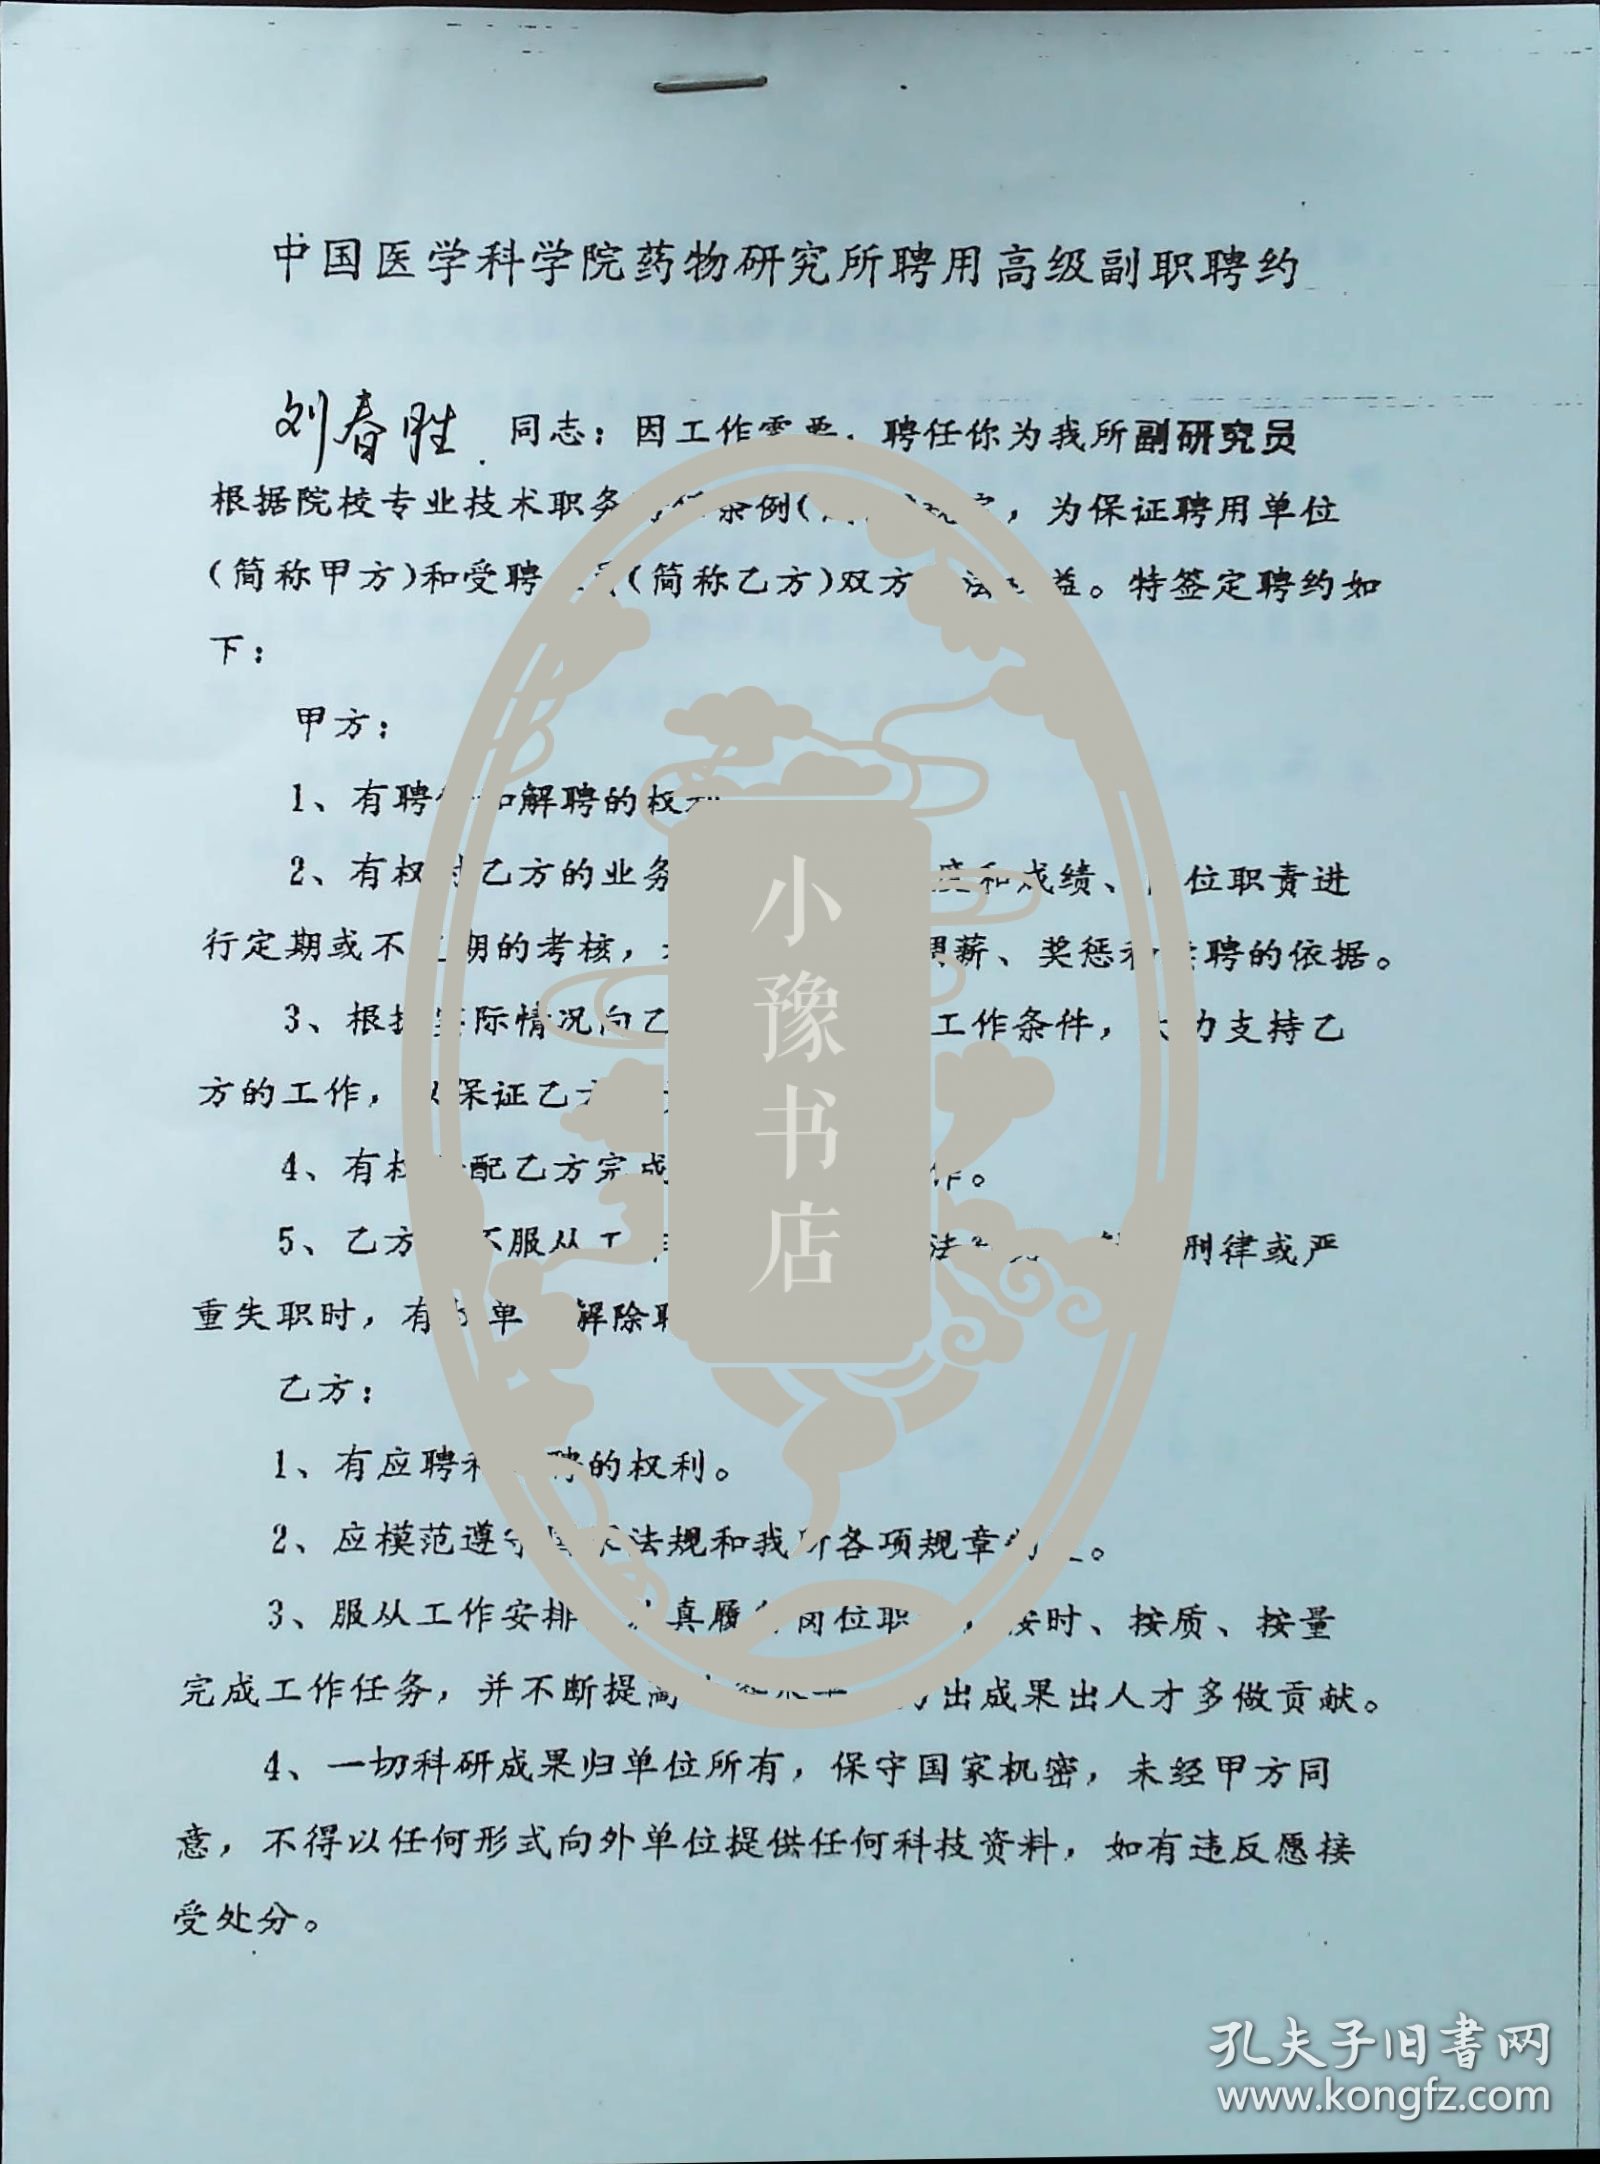 中国医学科学院药物研究所聘用高级副职聘约
刘春胜 同志：因工作需要，聘任你为我所副研究员
根据院校专业技术职务 条例( 定，为保证聘用单位
(简称甲方)和受聘 (简称乙方)双方 法 益。特签定聘约如
下：
甲方：
1、有聘 和解聘的权利
2、有权对乙方的业务 度和成绩、 位职责进
行定期或不定期的考核， 调薪、奖惩和 聘的依据。
3、根据实际情况向乙 工作条件，大力支持乙
方的工作，以保证乙方
4、有权 配乙方完成 作。
5、乙方 不服从工作 法 刑律或严
重失职时，有权单 解除聘
乙方：
1、有应聘和 聘的权利。
2、应模范遵守国家法规和我所各项规章制度。
3、服从工作安排 认真履行岗位职 ，按时、按质、按量
完成工作任务，并不断提高 出成果出人才多做贡献。
4、一切科研成果归单位所有，保守国家机密，未经甲方同
意，不得以任何形式向外单位提供任何科技资料，如有违反愿接
受处分。
小豫书店
孔夫子旧书网
www.kongfz.com